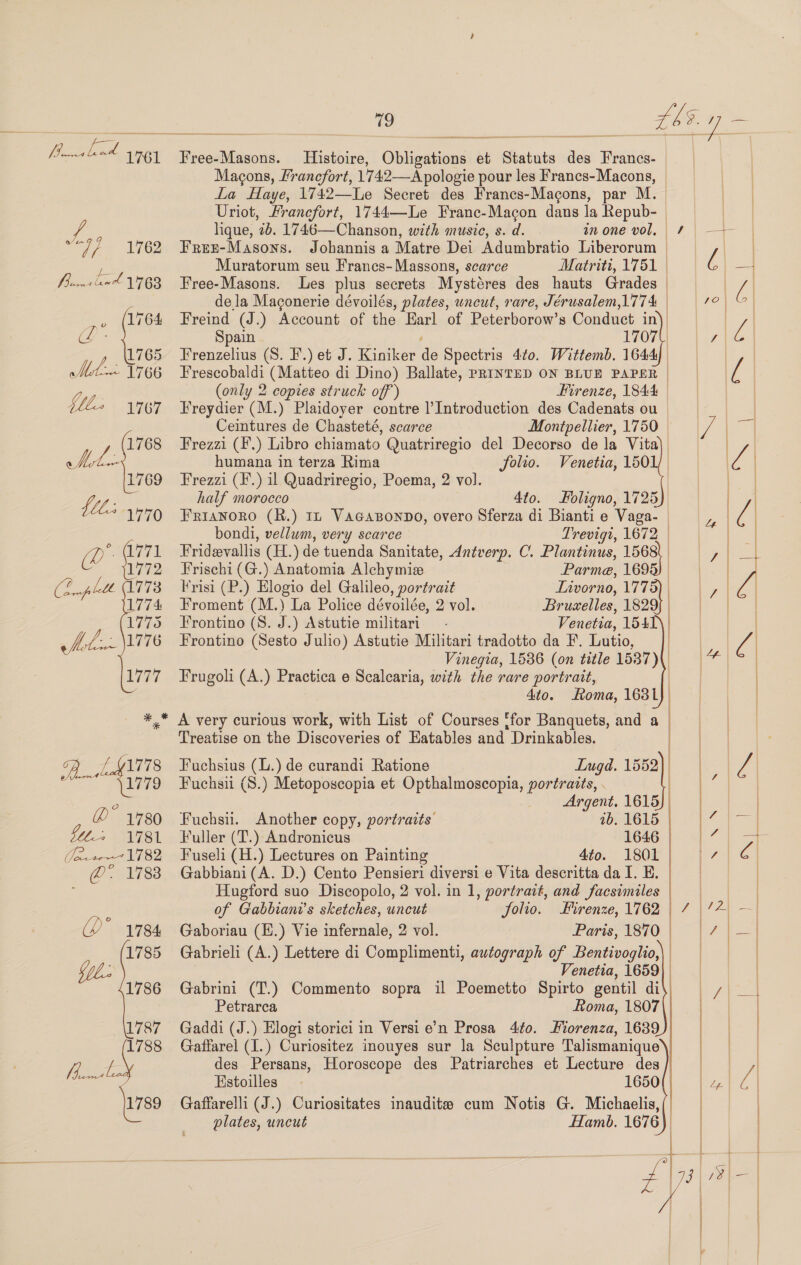 79
1761 Free-Masons. Histoire, Obligations et Statuts des Francs-
Maçons, Francfort, 1742—Apologie pour les Francs-Macons,
La Haye, 1742—Le Secret des Francs-Maçons, par M.
Uriot, Francfort, 1744—Le Franc-Maçon dans la Repub-
lique, ib. 1746—Chanson, with music, s. d. in one vol.
1762 Free-Masons. Johannis a Matre Dei Adumbratio Liberorum
Muratorum seu Francs-Massons, scarce Matriti, 1751
1763 Free-Masons. Les plus secrets Mystéres des hauts Grades
de la Maçonerie dévoilés, plates, uncut, rare, Jérusalem, 1774
1764 Freind (J.) Account of the Earl of Peterborow's Conduct in
Spain 1707
1765 Frenzelius (S. F.) et J. Kiniker de Spectris 4to. Wittemb. 1644
1766 Frescobaldi (Matteo di Dino) Ballate, PRINTED ON BLUE PAPER
(only 2 copies struck off) Firenze, 1844
1767 Freydier (M.) Plaidoyer contre l'Introduction des Cadenats ou
Ceintures de Chasteté, scarce Montpellier, 1750
1768 Frezzi (F.) Libro chiamato Quatriregio del Decorso de la Vita
humana in terza Rima folio. Venetia, 1501
1769 Frezzi (F.) il Quadriregio, Poema, 2 vol.
half morocco 4to. Foligno, 1725
1770 Frianoro (R.) Il Vagabondo, overo Sferza di Bianti e Vaga-
bondi, vellum, very scarce Trevigi, 1672
1771 Fridævallis (H.) de tuenda Sanitate, Antverp. C. Plantinus, 1568
1772 Frischi (G.) Anatomia Alchymiæ Parmæ, 1695
1773 Frisi (P.) Elogio del Galileo, portrait Livorno, 1775
1774 Froment (M.) La Police dévoilée, 2 vol. Bruxelles, 1829
1775 Frontino (S. J.) Astutie militari Venetia, 1541
1776 Frontino (Sesto Julio) Astutie Militari tradotto da F. Lutio,
Vinegia, 1536 (on title 1537)
1777 Frugoli (A.) Practica e Scalcaria, with the rare portrait,
4to. Roma, 1631
*** A very curious work, with List of Courses for Banquets, and a
Treatise on the Discoveries of Eatables and Drinkables.
1778 Fuchsius (L.) de curandi Ratione Lugd. 1552
1779 Fuchsii (S.) Metoposcopia et Opthalmoscopia, portraits,
Argent. 1615
1780 Fuchsii. Another copy, portraits ib. 1615
1781 Fuller (T.) Andronicus 1646
1782 Fuseli (H.) Lectures on Painting 4to. 1801
1783 Gabbiani (A. D.) Cento Pensieri diversi e Vita descritta da I. E.
Hugford suo Discopolo, 2 vol. in 1, portrait, and facsimiles
of Gabbiani's sketches, uncut folio. Firenze, 1762
1784 Gaboriau (E.) Vie infernale, 2 vol. Paris, 1870
1785 Gabrieli (A.) Lettere di Complimenti, autograph of Bentivoglio,
Venetia, 1659
1786 Gabrini (T.) Commento sopra il Poemetto Spirto gentil di
Petrarca Roma, 1807
1787 Gaddi (J.) Elogi storici in Versi e'n Prosa 4to. Fiorenza, 1639
1788 Gaffarel (I.) Curiositez inouyes sur la Sculpture Talismanique
des Persans, Horoscope des Patriarches et Lecture des
Estoilles 1650
1789 Gaffarelli (J.) Curiositates inauditæ cum Notis G. Michaelis,
plates, uncut Hamb. 1676